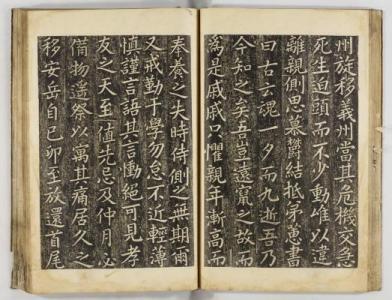 州旋移義州當其危機交急
死生迫頭而不少動唯以違
離親側思慕欝結抵弟蕙書
曰古云魂一夕而九逝吾乃
今知之矣吾豈遠竄之故而
爲是戚戚只懼親年漸高而
奉養之失時侍側之無期爾
又戒勤于學勿怠不近輕薄
愼謹言語其言慟絶可見孝
友之天至値先忌及仲月必
備物遙祭以寓其痛居久之
移安岳自己卯至放還首尾